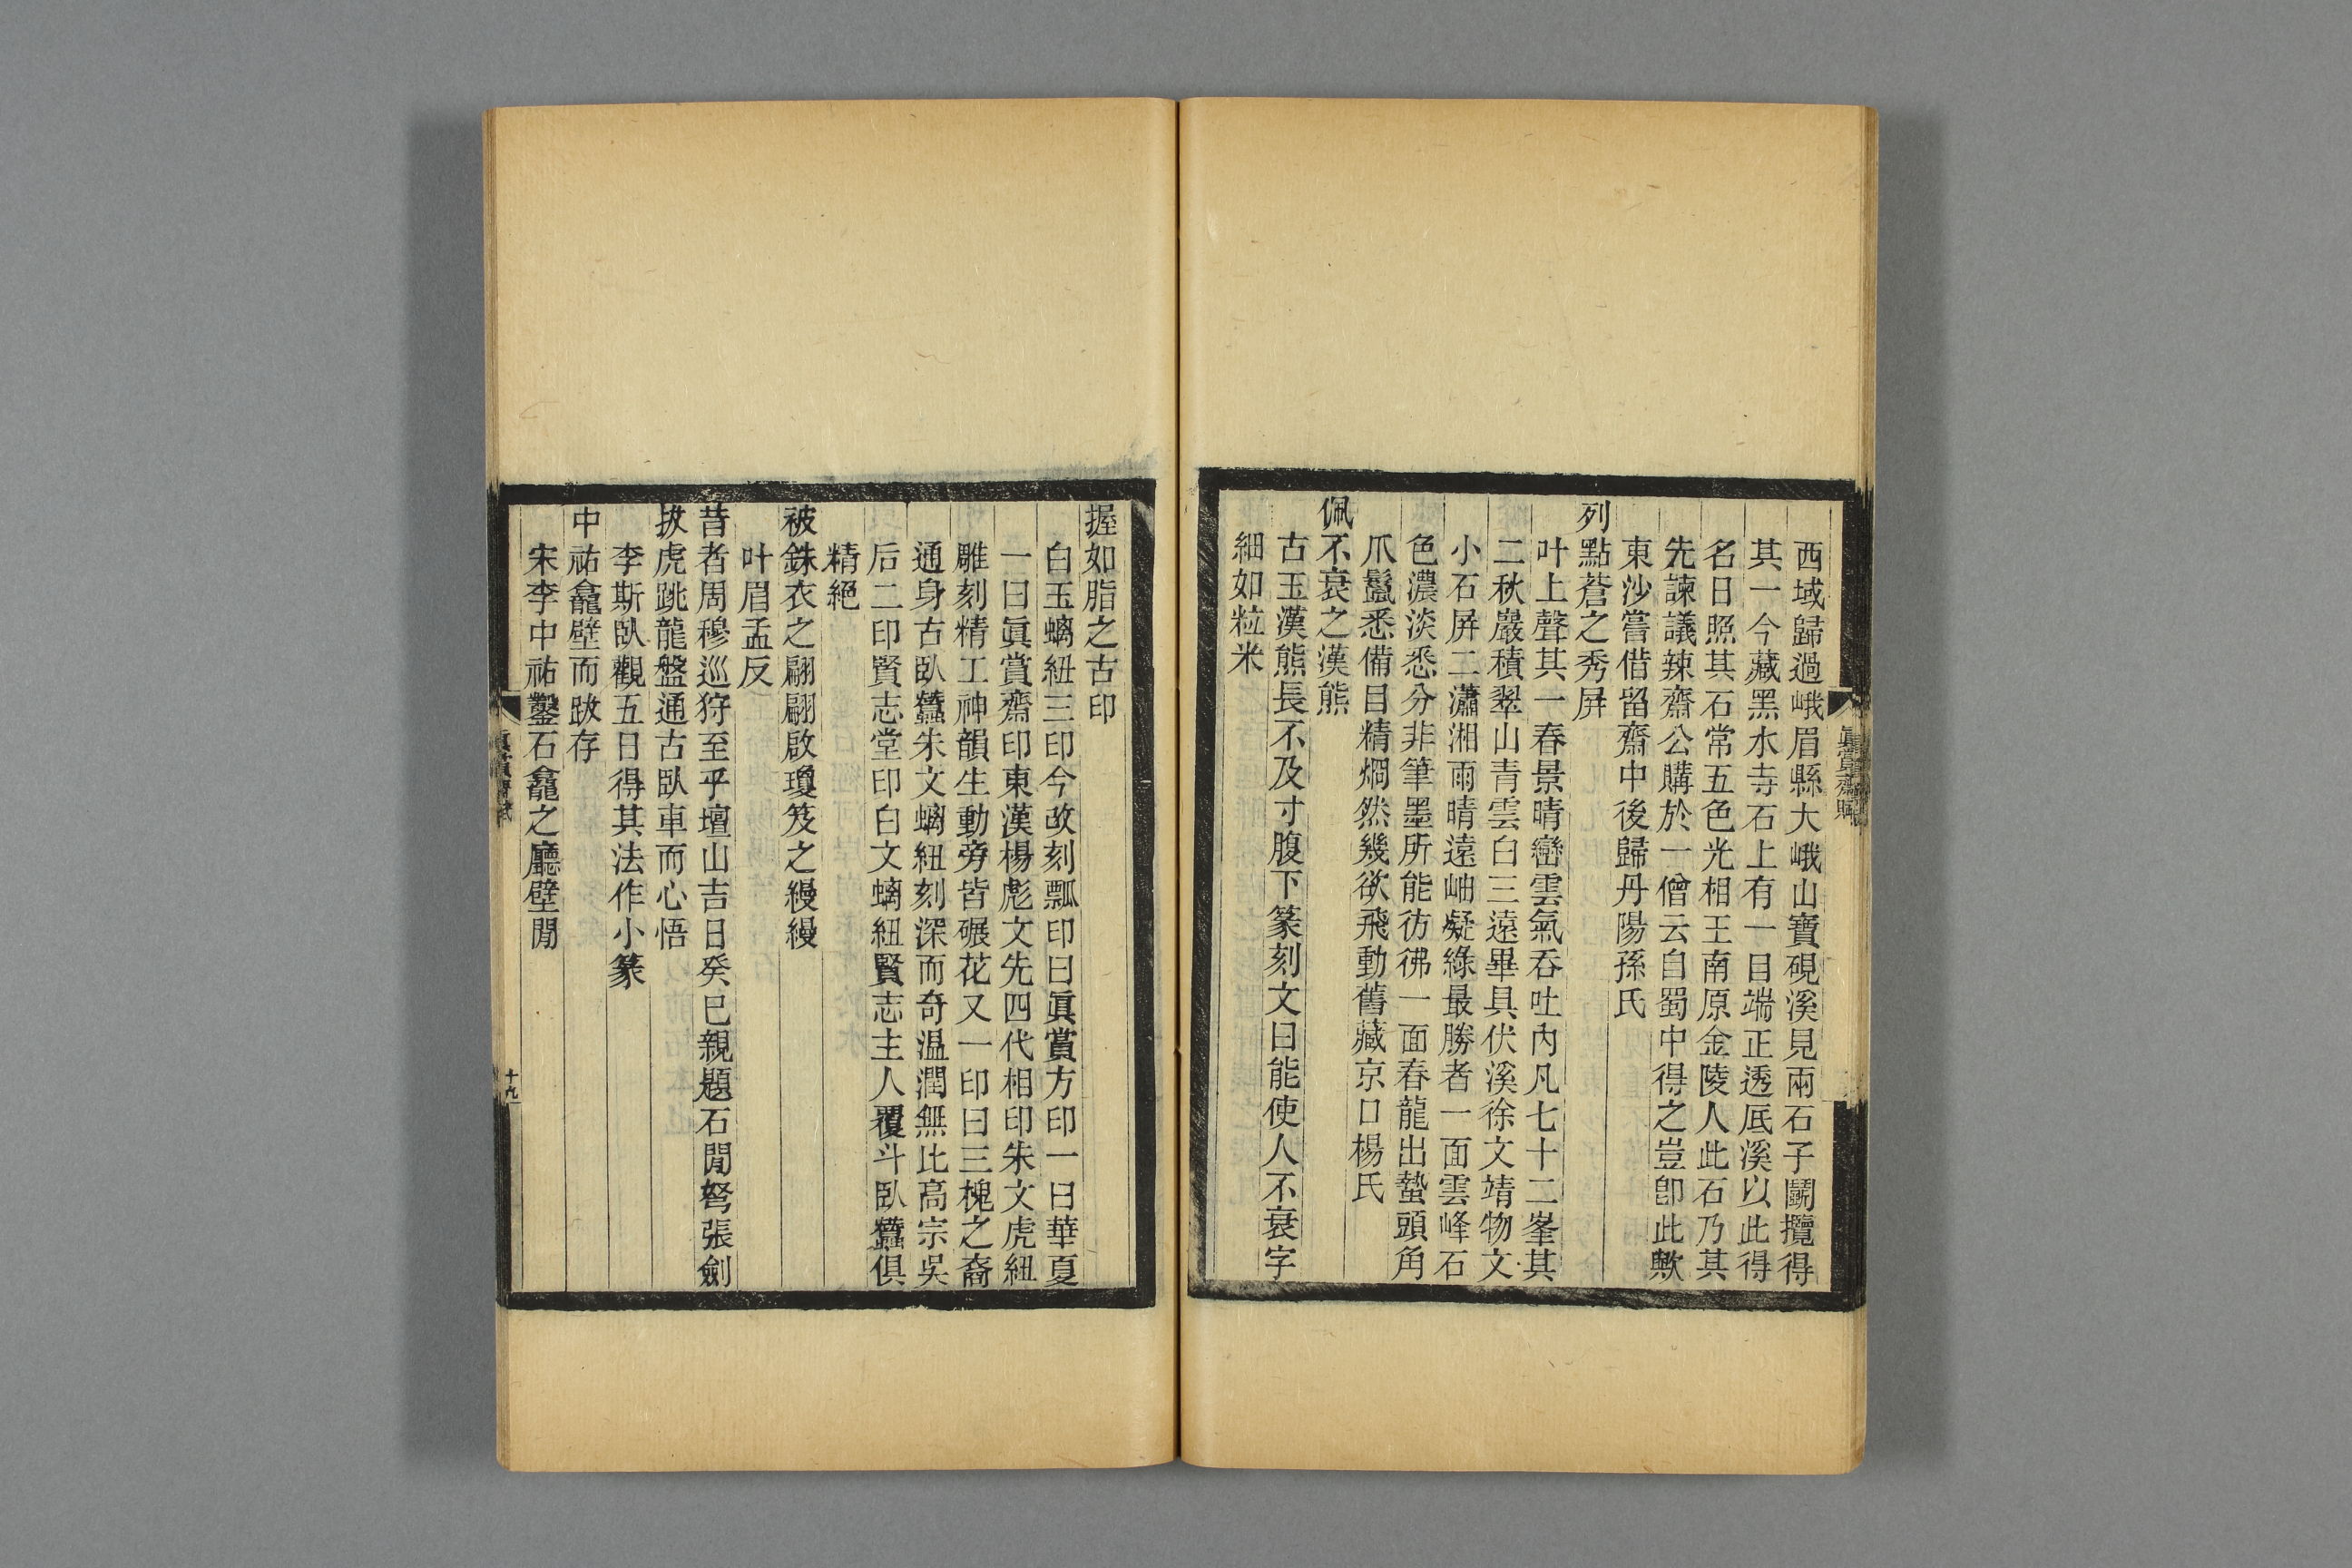 西域歸過峨眉縣大峨山寶硯溪見兩石子鬬攬得
其一今藏黑水寺石上有一目端正透底溪以此得
名日照其石常五色光相王南原金陵人此石乃其
先諫議辣齋公購於一僧云自蜀中得之豈卽此歟
東沙嘗借留齋中後歸丹陽孫氏
列點蒼之秀屏
叶上聲其一春景晴巒雲氣吞吐內凡七十二峯其
二秋巖積翠山青雲白三遠畢具伏溪徐文靖物文
小石屏二瀟湘雨晴遠岫凝綠最勝者一面雲峰石
色濃淡悉分非筆墨所能彷彿一面春龍出蟄頭角
爪鬣悉備目精烱然幾欲飛動舊藏京口楊氏
佩不衰之漢熊
古玉漢熊長不及寸腹下篆刻文曰能使人不衰字
細如粒米
眞賞齋賦
握如脂之古印
白玉螭紐三印今改刻瓢印曰眞賞方印一曰華夏
一曰眞賞齋印東漢楊彪文先四代相印朱文虎紐
雕刻精工神韻生動旁皆碾花又一印曰三槐之裔
通身古臥蠶朱文螭紐刻深而奇温潤無比高宗吳
后二印賢志堂印白文螭紐賢志主人覆斗臥蠶俱
精絕
被銖衣之翩翩啟瓊笈之縵縵
叶眉孟反
昔者周穆巡狩至乎壇山吉日癸巳親題石閒弩張劍
拔虎跳龍盤通古臥車而心悟
李斯臥觀五日得其法作小篆
中祐龕壁而跋存
宋李中祐鑿石龕之廳壁閒
眞賞齋賦
十九